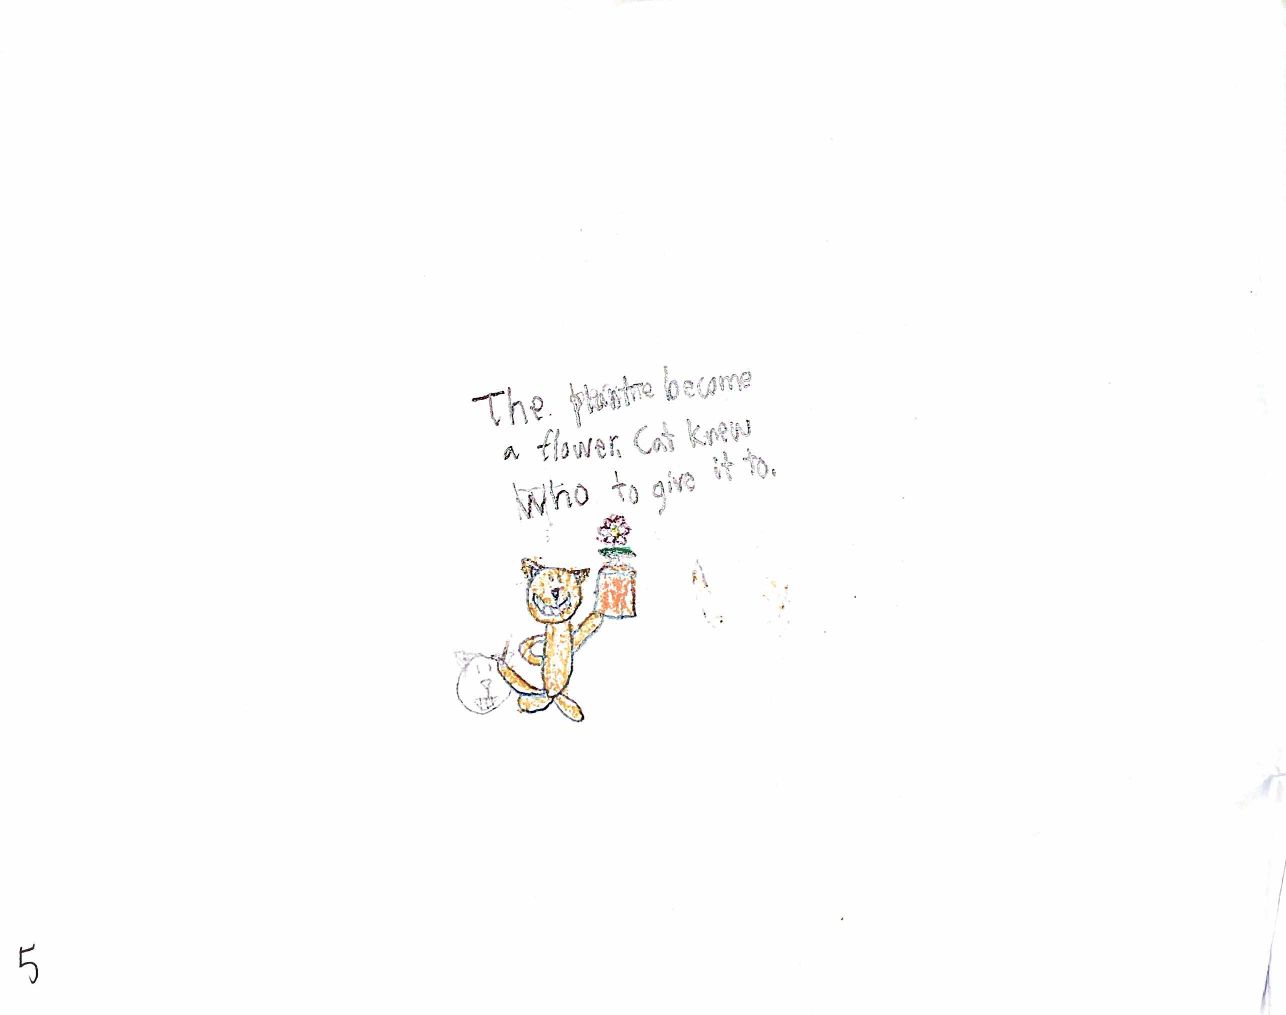 The become
a flower. Cat knew
Who to give it to.
5